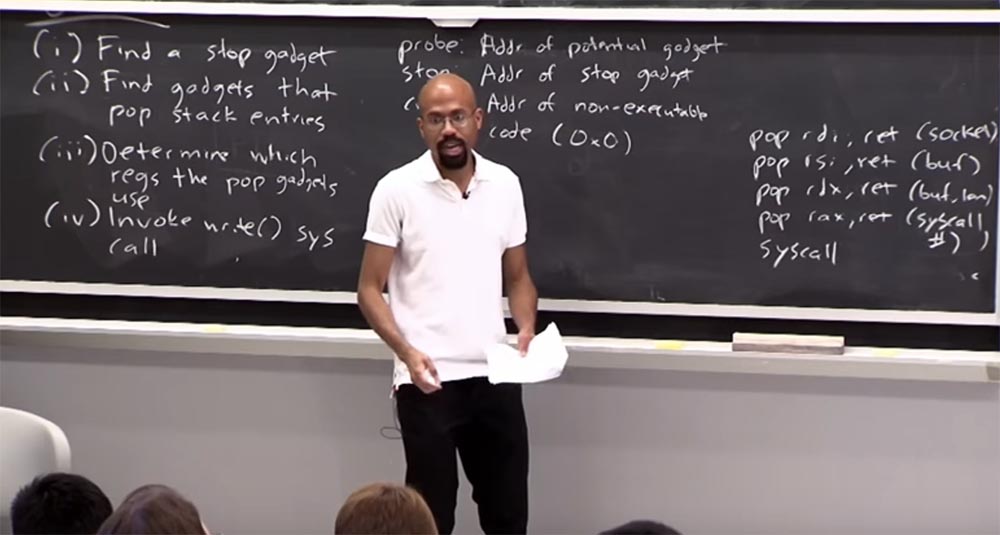 (i) Find a stop gadget
(ii) Find gadgets that
pop stack entries
(iii) Determine which
regs the pop gadgets
use
(iv) Invoke write() sys
call
probe: Addr of potential gadget
Addr of stop gadget
Addr of non-executable
code (0x0)
pop rdi, ret (socket)
pop rsi, ret (buf)
pop rdx, ret (buf, len)
pop rax, ret (syscall
#)
syscall